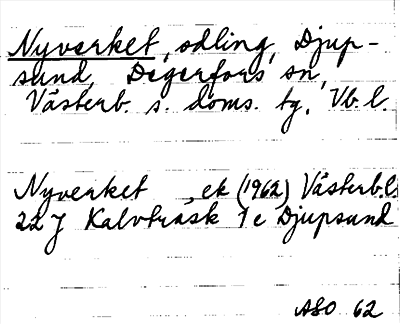 Nyverket, odling, Djup-
sund, Degerfors sn,
Västerb. s. doms. tg, Vb. l.
Nyverket , ek (1962) Västerb.l.
22 J Kalvträsk 1 e Djupsund
ASO 62